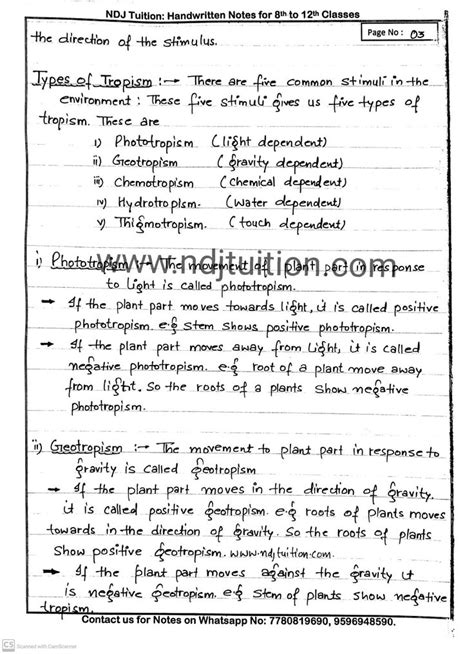 NDJ Tuition: Handwritten Notes for 8th to 12th Classes
Page No: 03
the direction of the stimulus.
Types of Tropism :→ There are five common stimuli in the
environment: These five stimuli gives us five types of
tropism. These are
i) Phototropism (light dependent)
ii) Geotropism (gravity dependent)
iii) Chemotropism (chemical dependent)
iv) Hydrotropism (water dependent)
v) Thigmotropism. (touch dependent)
www.ndjtuition.com
i) Phototropism :→ The movement of plant part in response
to light is called phototropism.
→ If the plant part moves towards light, it is called positive
phototropism. e.g stem shows positive phototropism.
→ If the plant part moves away from light, it is called
negative phototropism. e.g root of a plant move away
from light. So the roots of a plants show negative
phototropism.
ii) Geotropism :→ The movement to plant part in response to
gravity is called geotropism
→ If the plant part moves in the direction of gravity.
it is called positive geotropism. e.g roots of plants moves
towards in the direction of gravity. So the roots of plants
Show positive geotropism. www.ndjtuition.com.
→ If the plant part moves against the gravity it
is negative geotropism. e.g stem of plants show negative
tropism.
Contact us for Notes on Whatsapp No: 7780819690, 9596948590.
CS Scanned with CamScanner